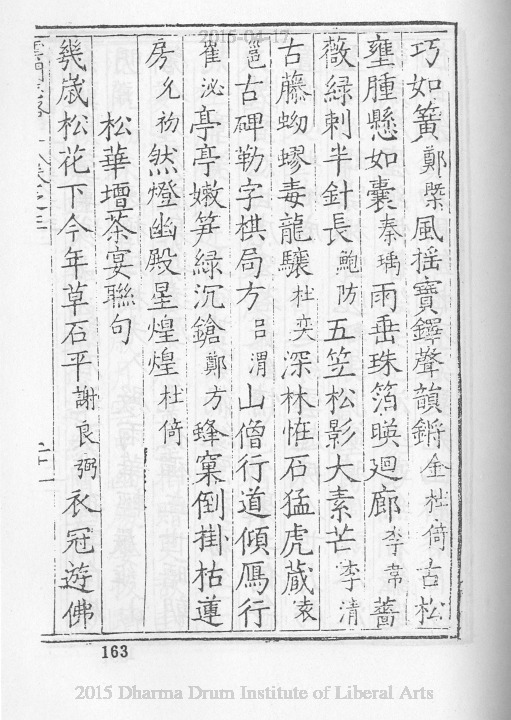 2015-04-17
巧如簧鄭槩風揺寶鐸聲韻鏘金杜倚古松
壅腫懸如囊秦瑀雨垂珠箔暎廻廊李常薔
薇緑刺半針長鮑防五笠松影大素芒李清
古藤蚴蟉毒龍驤杜奕深林恠石猛虎蔵袁
邕古碑勒字棋局方吕渭山僧行道傾鴈行
崔泌亭亭嫩笋緑沉鎗鄭方蜂窠倒掛枯蓮
房允初然燈幽殿星煌煌杜倚
松華壇茶宴聯句
幾歳松花下今年草石平謝良弼衣冠遊佛
163
2015 Dharma Drum Institute of Liberal Arts